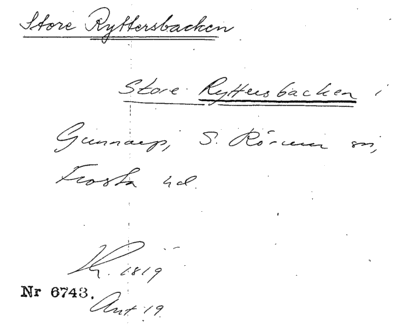 Store Ryttersbacken
Store Ryttersbacken i
Gunnarp, S. Rörum sn,
Frosta hd.
1819
Nr 6743.
Ant. 19